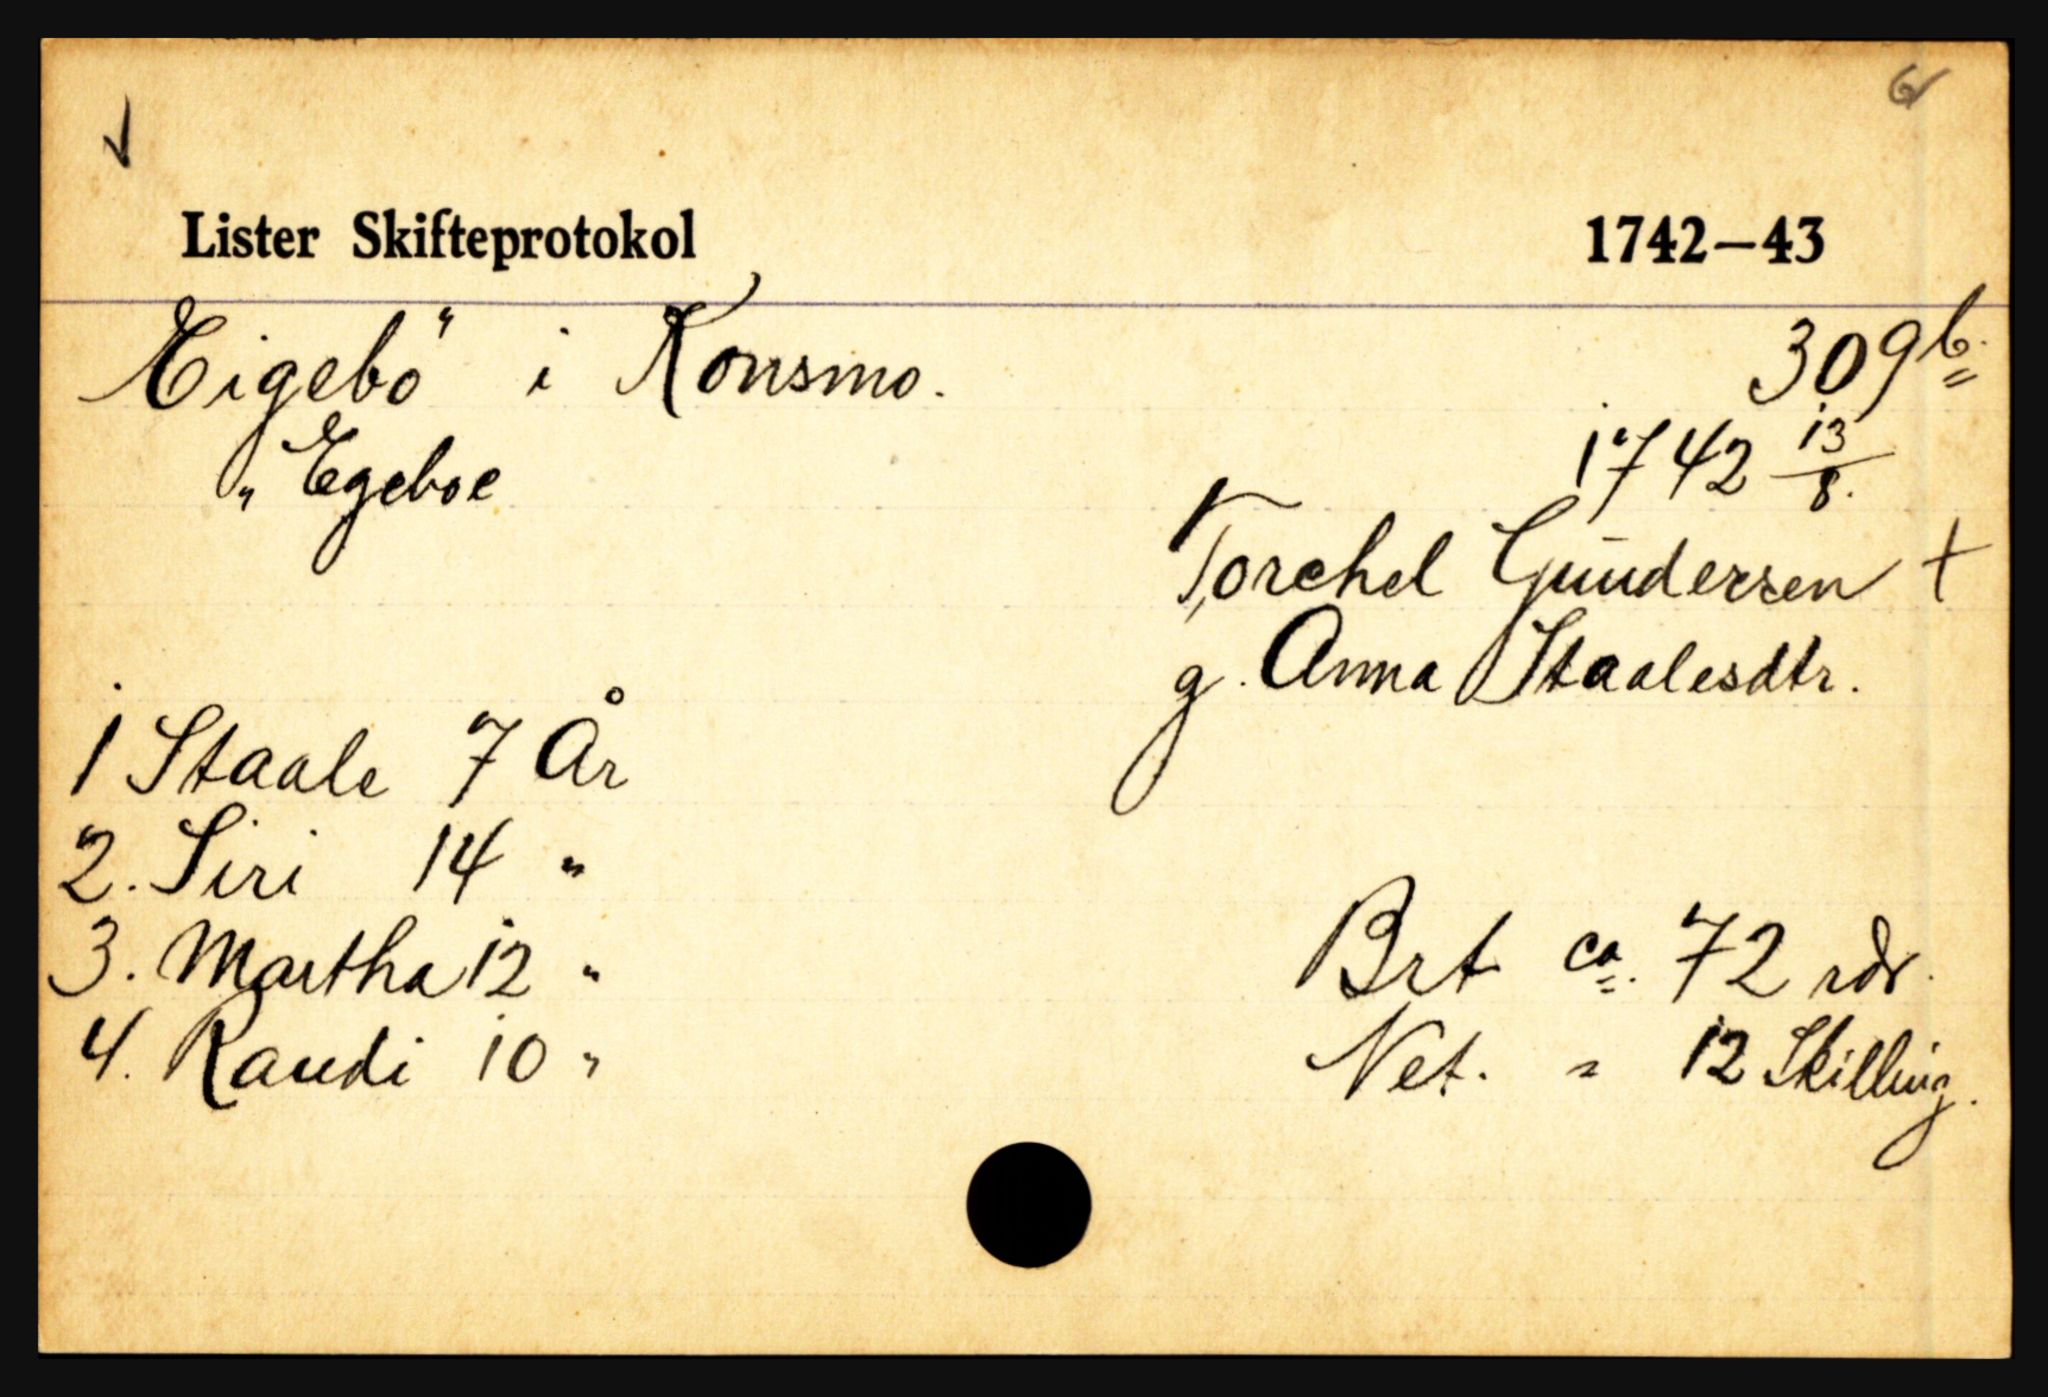 ✓
Lister Skifteprotokol 1742—43
Eigebö" i Konsmo. 309b.
„Egeboe
1742 13/8.
Torchel Gundersen †
g. Anna Staalesdtr.
1 Staale 7 År
2. Siri 14 "
3. Martha 12 "
4. Randi 10 "
Brt ca. 72 rdr.
Net. " 12 Skilling.